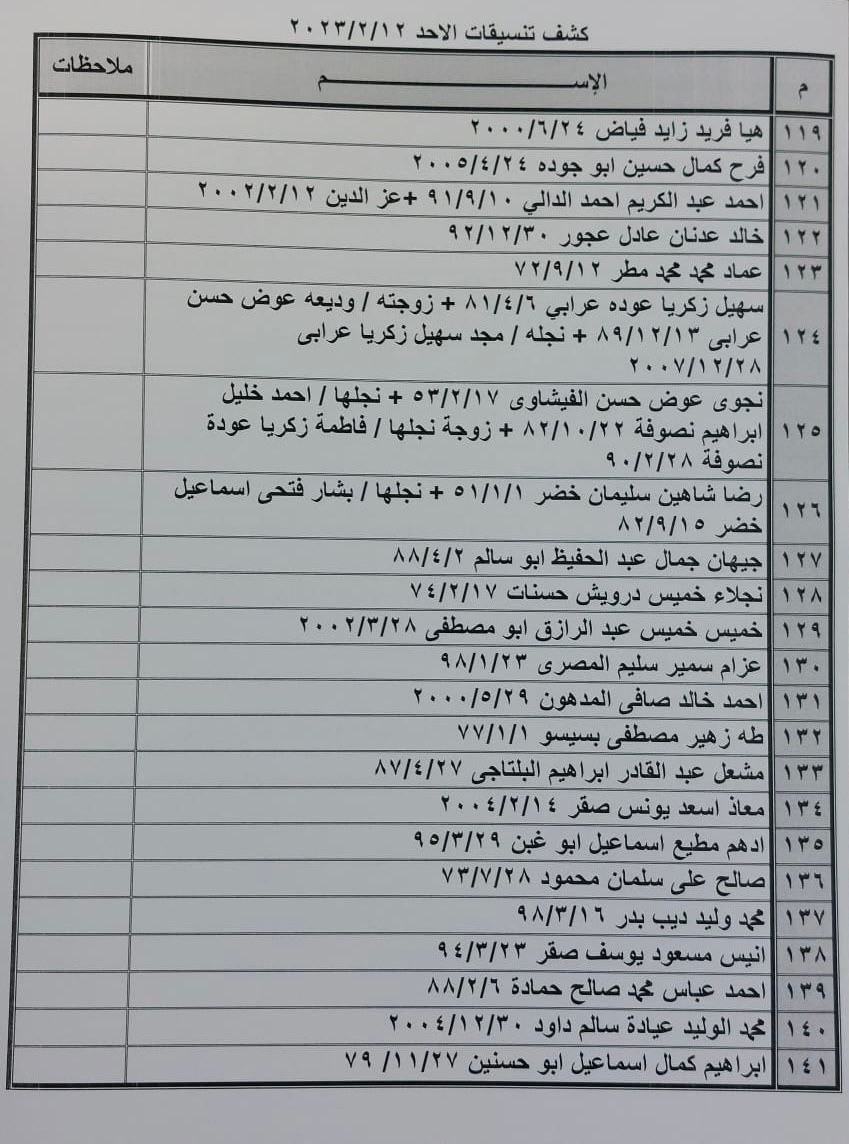 كشف تنسيقات الاحد ٢٠٢٣/٢/١٢
م الإســـــــم ملاحظات
١١٩ هيا فريد زايد فياض ٢٠٠٠/٦/٢٤
١٢٠ فرح كمال حسين ابو جوده ٢٠٠٥/٤/٢٤
١٢١ احمد عبد الكريم احمد الدالي ٩١/٩/١٠ +عز الدين ٢٠٠٢/٢/١٢
١٢٢ خالد عدنان عادل عجور ٩٢/١٢/٣٠
١٢٣ عماد محمد محمد مطر ٧٢/٩/١٢
سهيل زكريا عوده عرابي ٨١/٤/٦ + زوجته / وديعه عوض حسن
١٢٤ عرابى ٨٩/١٢/١٣ + نجله / مجد سهيل زكريا عرابى
٢٠٠٧/١٢/٢٨
نجوى عوض حسن الفيشاوى ٥٣/٢/١٧ + نجلها / احمد خليل
١٢٥ ابراهيم نصوفة ٨٢/١٠/٢٢ + زوجة نجلها / فاطمة زكريا عودة
نصوفة ٩٠/٢/٢٨
١٢٦ رضا شاهين سليمان خضر ٥١/١/١ + نجلها / بشار فتحى اسماعيل
خضر ٨٢/٩/١٥
١٢٧ جيهان جمال عبد الحفيظ ابو سالم ٨٨/٤/٢
١٢٨ نجلاء خميس درويش حسنات ٧٤/٢/١٧
١٢٩ خميس خميس عبد الرازق ابو مصطفى ٢٠٠٢/٣/٢٨
١٣٠ عزام سمير سليم المصرى ٩٨/١/٢٣
١٣١ احمد خالد صافى المدهون ٢٠٠٠/٥/٢٩
١٣٢ طه زهير مصطفى بسيسو ٧٧/١/١
١٣٣ مشعل عبد القادر ابراهيم البلتاجى ٨٧/٤/٢٧
١٣٤ معاذ اسعد يونس صقر ٢٠٠٤/٢/١٤
١٣٥ ادهم مطيع اسماعيل ابو غبن ٩٥/٣/٢٩
١٣٦ صالح على سلمان محمود ٧٣/٧/٢٨
١٣٧ محمد وليد ديب بدر ٩٨/٣/١٦
١٣٨ انيس مسعود يوسف صقر ٩٤/٣/٢٣
١٣٩ احمد عباس محمد صالح حمادة ٨٨/٢/٦
١٤٠ محمد الوليد عيادة سالم داود ٢٠٠٤/١٢/٣٠
١٤١ ابراهيم كمال اسماعيل ابو حسنين ٧٩/١١/٢٧